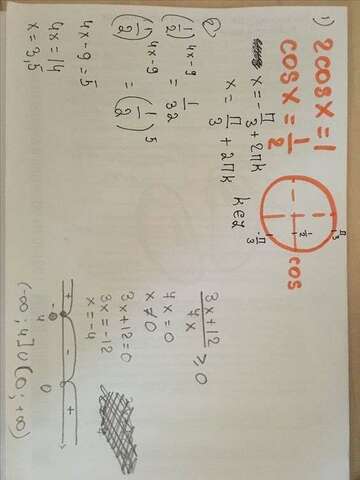 1) 2cosx=1
cosx=1/2
x=-π/3+2πk
x=π/3+2πk k∈z
π/3
1/2
-π/3
cos
2)
(1/2)^4x-9 = 1/32
(1/2)^4x-9 = (1/2)^5
4x-9=5
4x=14
x=3,5
3x+12/4x ≥0
4x=0
x≠0
3x+12=0
3x=-12
x=-4
+ - +
-4 0
(-∞;4]∪(0;+∞)